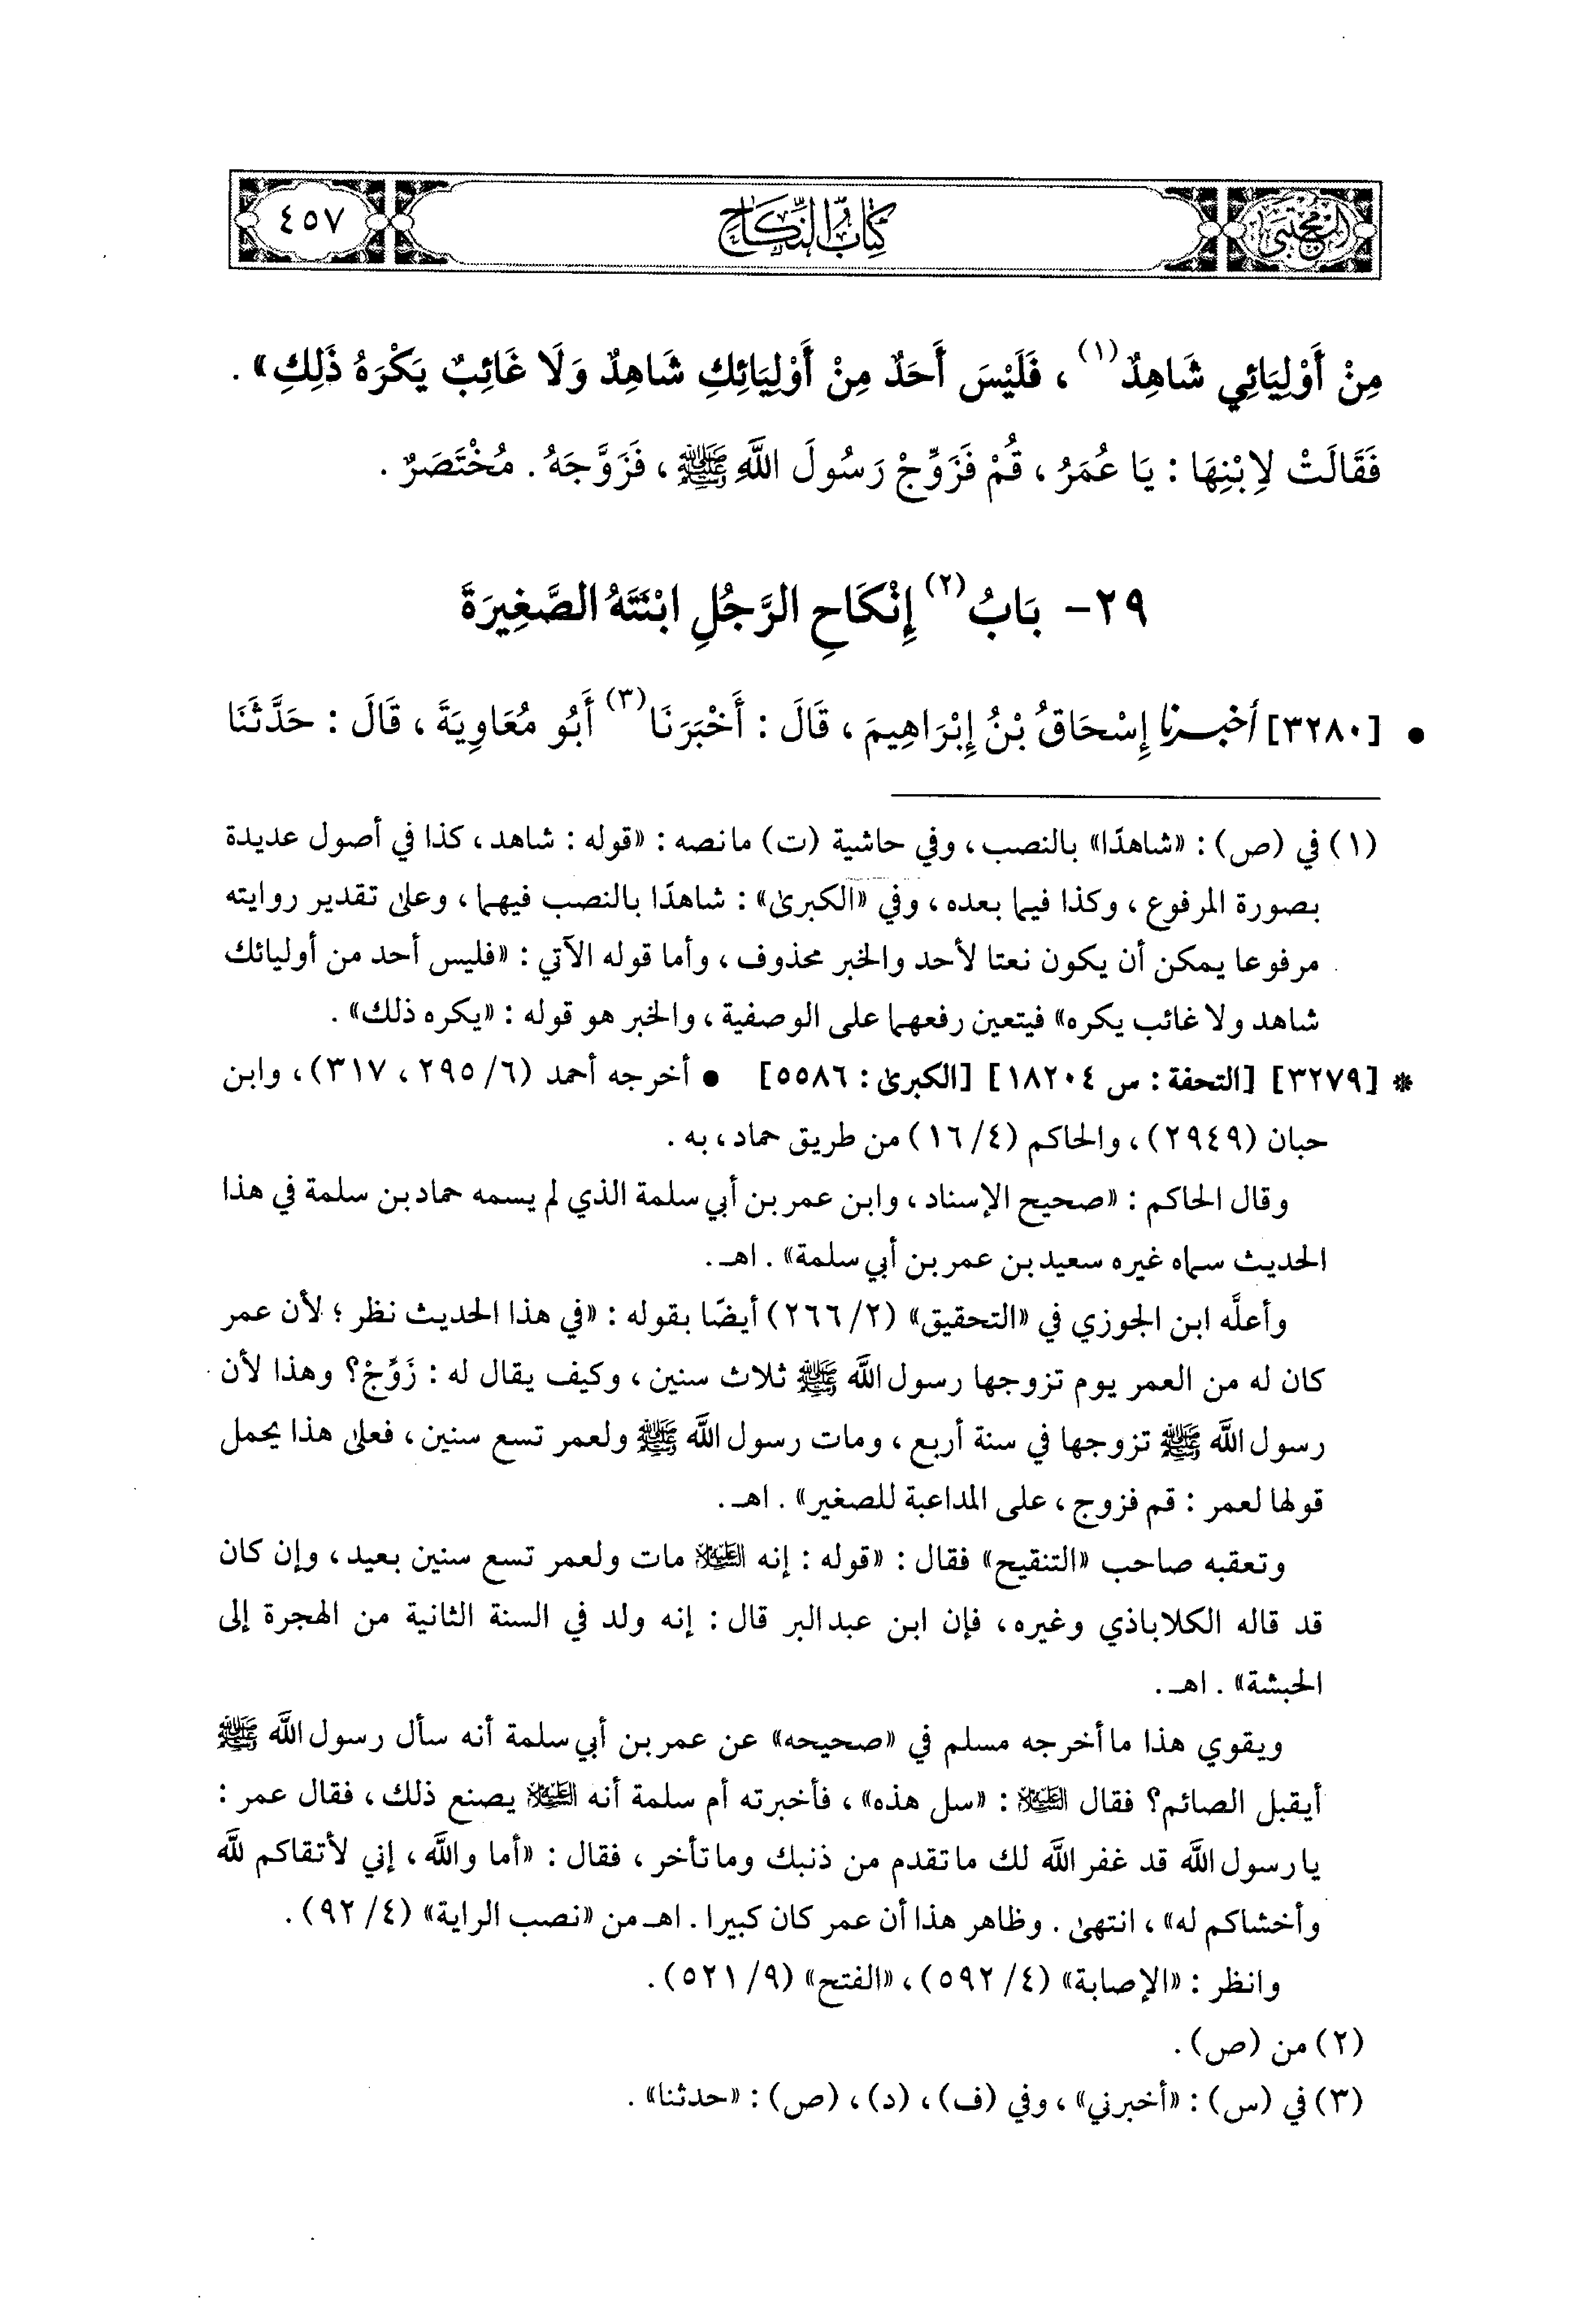 المجتبى
كتاب النكاح
٤٥٧
مِنْ أَوْلِيَائِي شَاهِدٌ(١)، فَلَيْسَ أَحَدٌ مِنْ أَوْلِيَائِكِ شَاهِدٌ وَلَا غَائِبٌ يَكْرَهُ ذَلِكِ» .
فَقَالَتْ لِابْنِهَا : يَا عُمَرُ ، قُمْ فَزَوِّجْ رَسُولَ اللَّهِ ﷺ ، فَزَوَّجَهُ . مُخْتَصَرٌ .
٢٩- بَابُ(٢) إِنْكَاحِ الرَّجُلِ ابْنَتَهُ الصَّغِيرَةَ
• [٣٢٨٠] أخبرنا إِسْحَاقُ بْنُ إِبْرَاهِيمَ ، قَالَ : أَخْبَرَنَا(٣) أَبُو مُعَاوِيَةَ ، قَالَ : حَدَّثَنَا
(١) في (ص) : «شاهدًا» بالنصب ، وفي حاشية (ت) ما نصه : «قوله : شاهد ، كذا في أصول عديدة
بصورة المرفوع ، وكذا فيما بعده ، وفي «الكبرى» : شاهدًا بالنصب فيهما ، وعلى تقدير روايته
مرفوعا يمكن أن يكون نعتا لأحد والخبر محذوف ، وأما قوله الآتي : «فليس أحد من أوليائك
شاهد ولا غائب يكره» فيتعين رفعهما على الوصفية ، والخبر هو قوله : «يكره ذلك» .
* [٣٢٧٩] [التحفة : س ١٨٢٠٤] [الكبرى : ٥٥٨٦] • أخرجه أحمد (٦/ ٢٩٥ ، ٣١٧) ، وابن
حبان (٢٩٤٩) ، والحاكم (٤/ ١٦) من طريق حماد ، به .
وقال الحاكم : «صحيح الإسناد ، وابن عمر بن أبي سلمة الذي لم يسمه حماد بن سلمة في هذا
الحديث سماه غيره سعيد بن عمر بن أبي سلمة» . اهـ .
وأعلَّه ابن الجوزي في «التحقيق» (٢/ ٢٦٦) أيضًا بقوله : «في هذا الحديث نظر ؛ لأن عمر
كان له من العمر يوم تزوجها رسول اللَّه ﷺ ثلاث سنين ، وكيف يقال له : زَوِّجْ؟ وهذا لأن
رسول اللَّه ﷺ تزوجها في سنة أربع ، ومات رسول اللَّه ﷺ ولعمر تسع سنين ، فعلى هذا يحمل
قولها لعمر : قم فزوج ، على المداعبة للصغير» . اهـ .
وتعقبه صاحب «التنقيح» فقال : «قوله : إنه عليه السلام مات ولعمر تسع سنين بعيد ، وإن كان
قد قاله الكلاباذي وغيره ، فإن ابن عبدالبر قال : إنه ولد في السنة الثانية من الهجرة إلى
الحبشة» . اهـ .
ويقوي هذا ما أخرجه مسلم في «صحيحه» عن عمر بن أبي سلمة أنه سأل رسول اللَّه ﷺ
أيقبل الصائم؟ فقال عليه السلام : «سل هذه» ، فأخبرته أم سلمة أنه عليه السلام يصنع ذلك ، فقال عمر :
يا رسول اللَّه قد غفر اللَّه لك ما تقدم من ذنبك وما تأخر ، فقال : «أما واللَّه ، إني لأتقاكم للَّه
وأخشاكم له» ، انتهى . وظاهر هذا أن عمر كان كبيرا . اهـ من «نصب الراية» (٤/ ٩٢) .
وانظر : «الإصابة» (٤/ ٥٩٢) ، «الفتح» (٩/ ٥٢١) .
(٢) من (ص) .
(٣) في (س) : «أخبرني» ، وفي (ف) ، (د) ، (ص) : «حدثنا» .